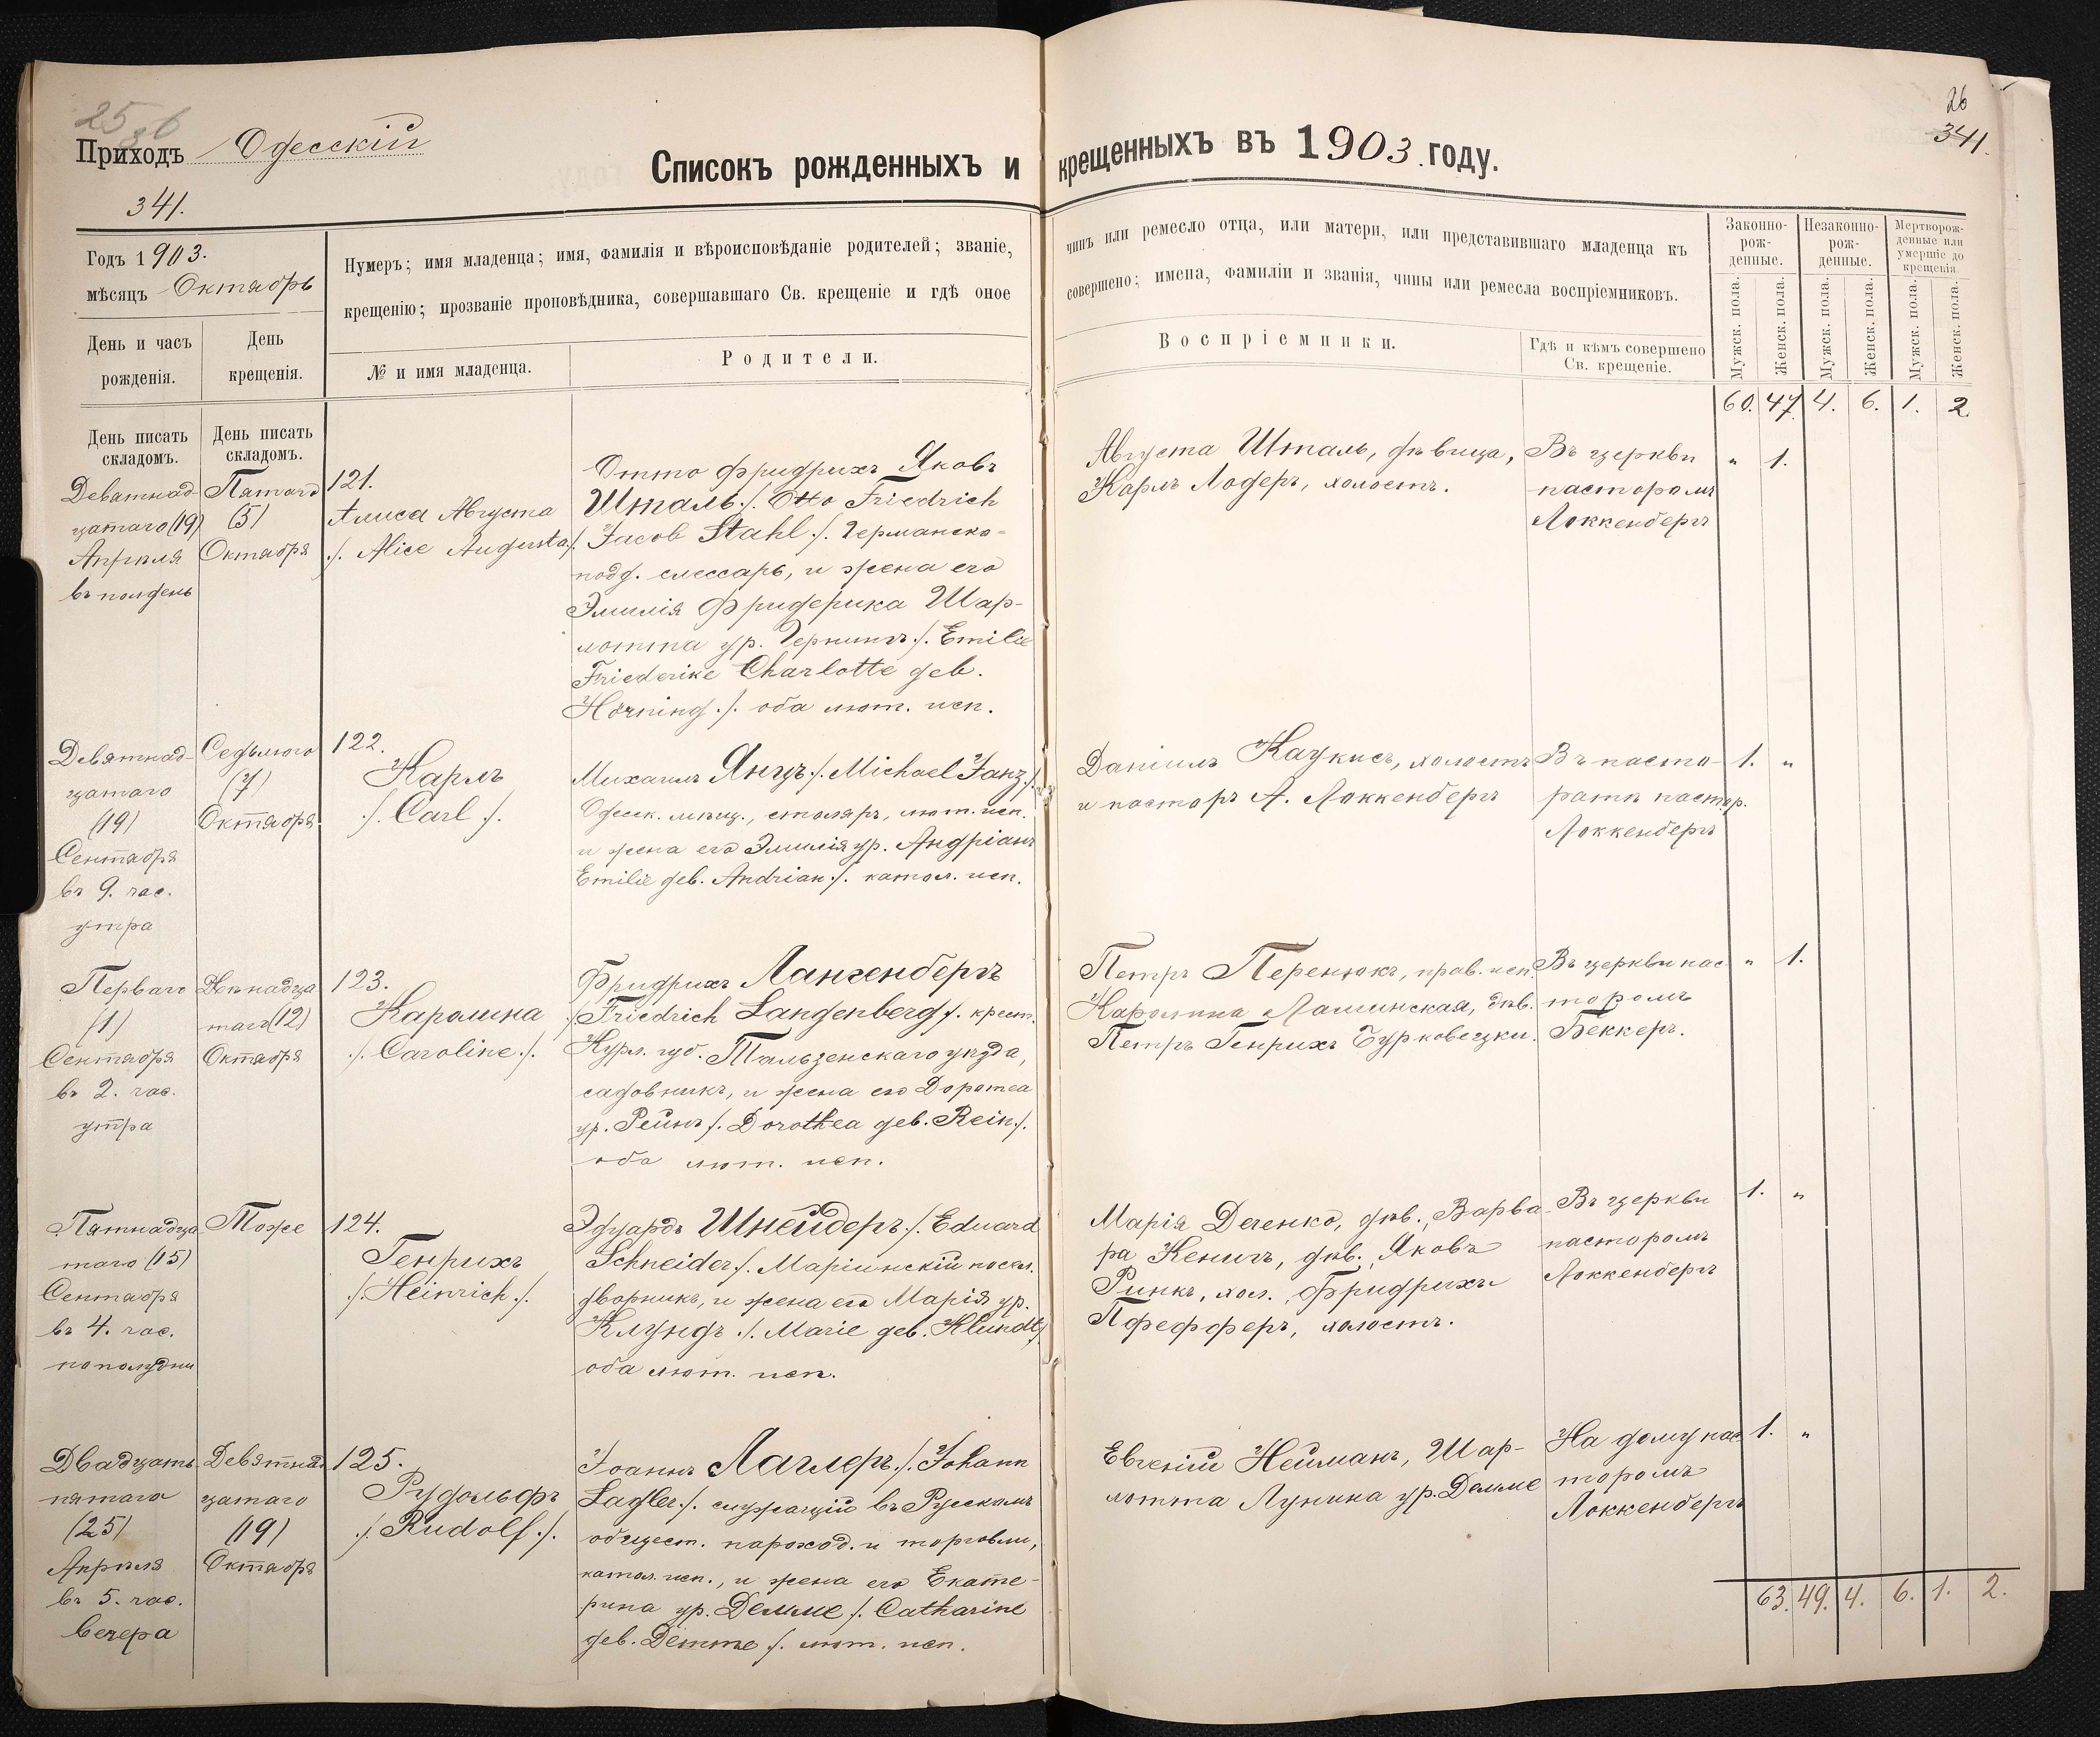 25 об
Приходъ Одесскій
341.
26
341.
Списокъ рожденныхъ и крещенныхъ въ 1903. году.
Годъ 1903.
мѣсяцъ Октябрь
Нумеръ; имя младенца; имя, фамилія и вѣроисповѣданіе родителей; званіе, чинъ или ремесло отца, или матери, или представившаго младенца къ
крещенію; прозваніе проповѣдника, совершавшаго Св. крещеніе и гдѣ оное совершено; имена, фамиліи и званія, чины или ремесла воспріемниковъ.
День и часъ
рожденія.
День
крещенія.
№ и имя младенца.
Родители.
Воспріемники.
Гдѣ и кѣмъ совершено
Св. крещеніе.
Законно-
рож-
денные.
Незаконно-
рож-
денные.
Мертворож-
денные или
умершіе до
крещенія.
Мужск. пола.
Женск. пола.
Мужск. пола.
Женск. пола.
Мужск. пола.
Женск. пола.
60. 47. 4. 6. 1. 2.
День писать
складомъ.
День писать
складомъ.
Девятнад-
цатаго (19)
Апрѣля
въ полдень
Пятаго
(5)
Октября
121.
Алиса Августа
./. Alice Augusta ./.
Отто Фридрихъ Яковъ
Шталь ./. Otto Friedrich
Jacob Stahl ./. Германско-
подд. слесарь, и жена его
Эмилія Фридерика Шар-
лотта ур. Гернингъ ./. Emilie
Friederike Charlotte geb.
Hörning ./. оба лют. исп.
Августа Шталь, дѣвица,
Карлъ Лодеръ, холостъ.
Въ церкви
пасторомъ
Локкенбергъ
" 1.
Девятнад-
цатаго
(19)
Сентября
въ 9. час.
утра
Седьмого
(7)
Октября
122.
Карлъ
./. Carl ./.
Михаилъ Янцъ ./. Michael Janz ./.
Одесск. мѣщ., столяръ, лют. исп.
и жена его Эмилія ур. Андріанъ
Emilie geb. Andrian ./. катол. исп.
Даніилъ Каукисъ, холостъ
и пасторъ А. Локкенбергъ
Въ пасто-
ратѣ пастор.
Локкенбергъ
1. "
Перваго
(1)
Сентября
въ 2. час.
утра
Двѣнадца
таго (12)
Октября
123.
Каролина
./. Caroline ./.
Фридрихъ Лангенбергъ
./. Friedrich Langenberg ./. крест.
Курл. губ. Тальзенскаго уѣзда,
садовникъ, и жена его Доротеа
ур. Рейнъ ./. Dorothea geb. Rein ./.
оба лют. исп.
Петръ Перенюкъ, прав. исп.
Каролина Лашинская, дѣв.
Петръ Генрихъ Бурковецки.
Въ церкви пас
торомъ
Беккеръ.
" 1.
Пятнадца
таго (15)
Сентября
въ 4. час.
пополудни
Тоже
124.
Генрихъ
./. Heinrich ./.
Эдуардъ Шнейдеръ ./. Eduard
Schneider ./. Маріинскій посел.
дворникъ, и жена его Марія ур.
Клундъ ./. Marie geb. Klundt ./.
оба лют. исп.
Марія Деченко, дѣв., Варва
ра Кенигъ, дѣв., Яковъ
Ринкъ, хол., Фридрихъ
Пфефферъ, холостъ.
Въ церкви
пасторомъ
Локкенбергъ
1. "
Двадцать
пятаго
(25)
Апрѣля
въ 5. час.
вечера
Девятнад
цатаго
(19)
Октября
125.
Рудольфъ
./. Rudolf ./.
Іоаннъ Лаглеръ ./. Johann
Lagler ./. служащій въ Русскомъ
общест. пароход. и торговли,
катол. исп., и жена его Екате-
рина ур. Демме ./. Catharine
geb. Demme ./. лют. исп.
Евгеній Нейманъ, Шар-
лотта Лунина ур. Демме
На дому пас
торомъ
Локкенбергъ
1. "
63. 49. 4. 6. 1. 2.